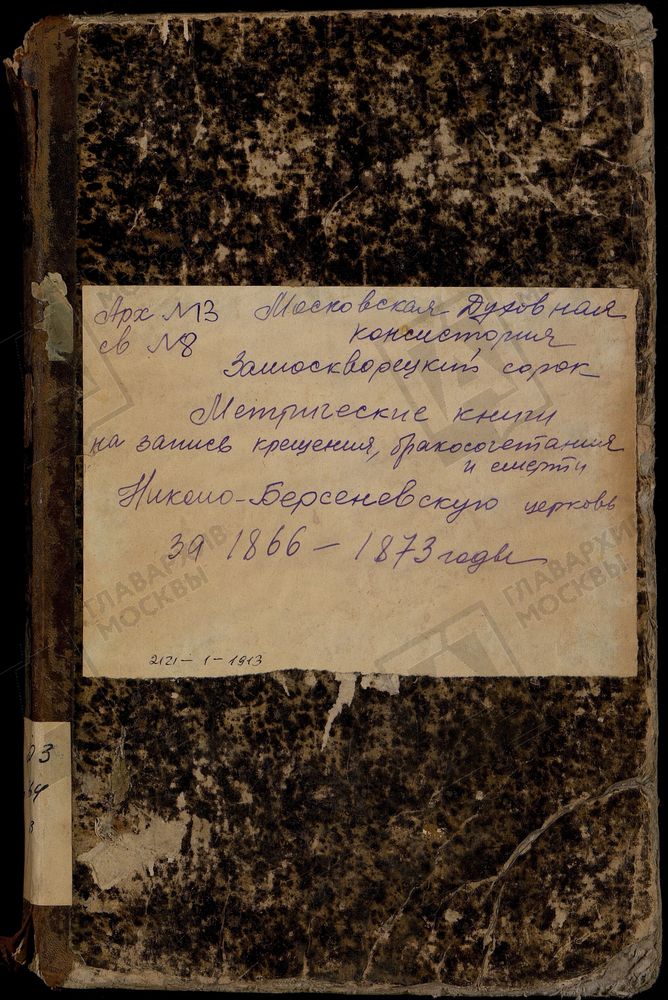 Арх №13 Московская Духовная
св №8 консистория
Замоскворецкий сорок
Метрические книги
на запись крещения, бракосочетания
и смерти
Николо-Берсеневскую церковь
за 1866 – 1873 годы
2121 – 1 – 1913
3
ГЛАВАРХИВ
МОСКВЫ
ГЛАВАРХИВ
МОСКВЫ